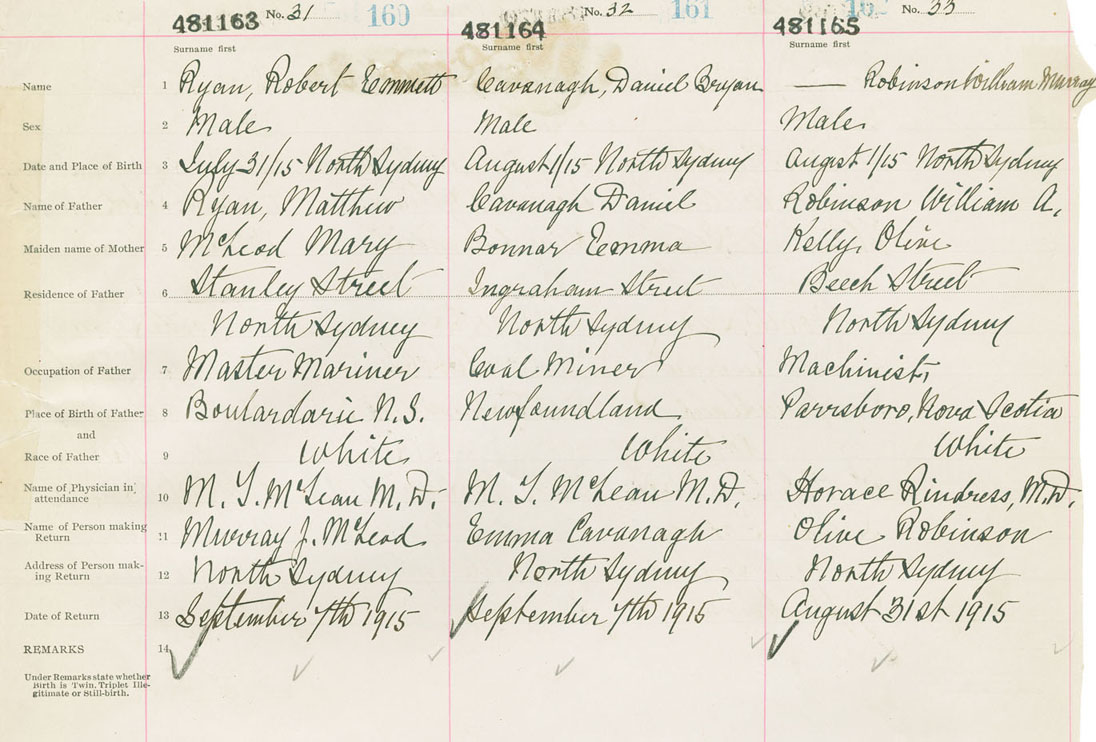 481163 No. 31 160 481164 No. 32 161 481165 No. 33
Surname first Surname first Surname first
Name 1 Ryan, Robert Emmett Cavanagh, Daniel Bryan — Robinson William Murray
Sex 2 Male Male Male
Date and Place of Birth 3 July 31/15 North Sydney August 1/15 North Sydney August 1/15 North Sydney
Name of Father 4 Ryan, Matthew Cavanagh Daniel Robinson William A.
Maiden name of Mother 5 McLeod Mary Bonnar Emma Kelly, Olive
Residence of Father 6 Stanley Street Ingraham Street Beech Street
North Sydney North Sydney North Sydney
Occupation of Father 7 Master Mariner Coal Miner Machinist
Place of Birth of Father 8 Boulardarie N.S. Newfoundland Parrsboro, Nova Scotia
and
Race of Father 9 White White White
Name of Physician in attendance 10 M. T. McLean M.D. M. T. McLean M.D. Horace Rindress, M.D.
Name of Person making Return 11 Murray J. McLeod Emma Cavanagh Olive Robinson
Address of Person making Return 12 North Sydney North Sydney North Sydney
Date of Return 13 September 7th 1915 September 7th 1915 August 31st 1915
REMARKS 14
Under Remarks state whether
Birth is Twin, Triplet Ille-
gitimate or Still-birth.